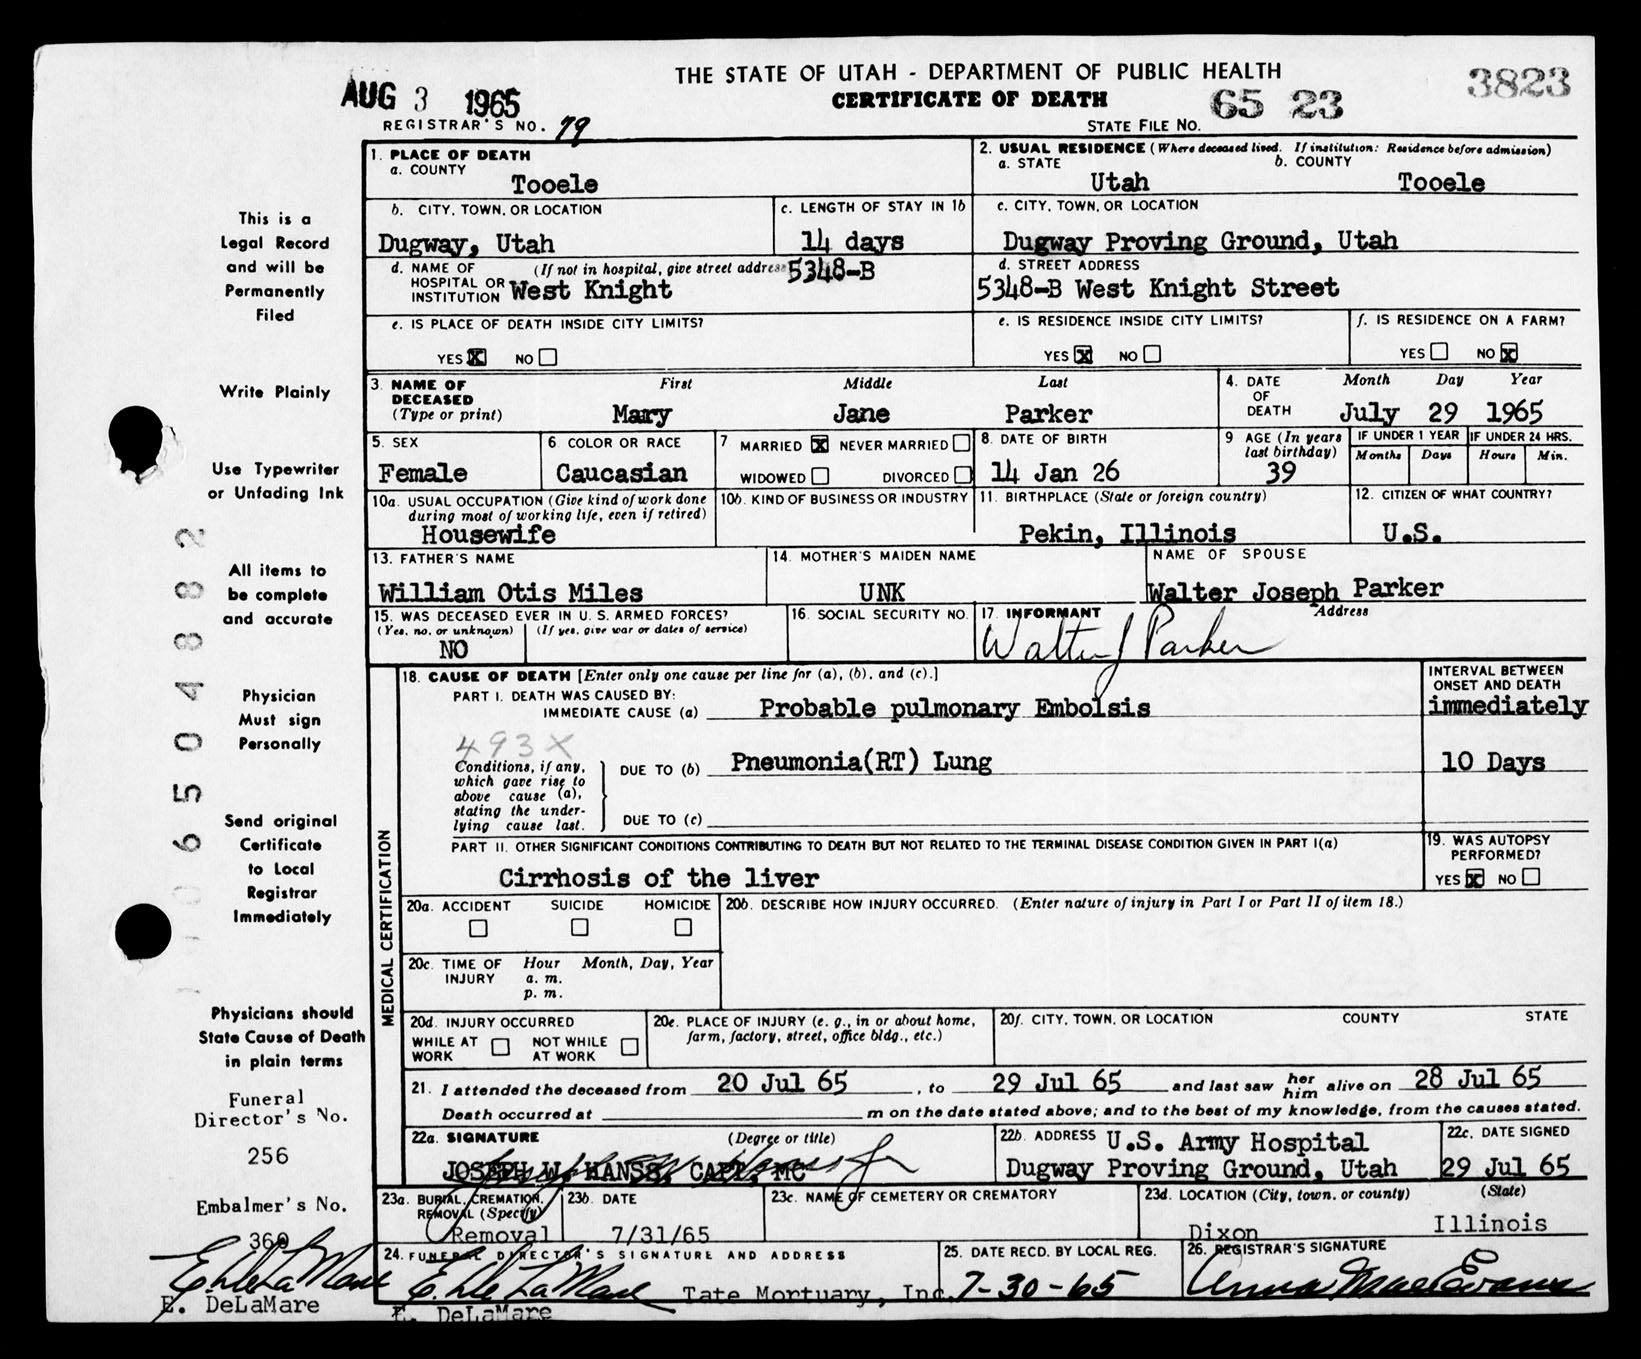 THE STATE OF UTAH - DEPARTMENT OF PUBLIC HEALTH
CERTIFICATE OF DEATH
3823
AUG 3 1965
REGISTRAR'S NO. 79
STATE FILE NO. 65 23
This is a
Legal Record
and will be
Permanently
Filed
Write Plainly
Use Typewriter
or Unfading Ink
All items to
be complete
and accurate
Physician
Must sign
Personally
Send original
Certificate
to Local
Registrar
Immediately
Physicians should
State Cause of Death
in plain terms
Funeral
Director's No.
256
Embalmer's No.
360
E. DeLaMare
E. DeLaMare
65 0 4 8 8 2
1. PLACE OF DEATH
a. COUNTY
Tooele
2. USUAL RESIDENCE (Where deceased lived. If institution: Residence before admission)
a. STATE b. COUNTY
Utah Tooele
b. CITY, TOWN, OR LOCATION
Dugway, Utah
c. LENGTH OF STAY IN 1b
14 days
c. CITY, TOWN, OR LOCATION
Dugway Proving Ground, Utah
d. NAME OF HOSPITAL OR INSTITUTION (If not in hospital, give street address 5348-B
West Knight
d. STREET ADDRESS
5348-B West Knight Street
e. IS PLACE OF DEATH INSIDE CITY LIMITS?
YES X NO
e. IS RESIDENCE INSIDE CITY LIMITS?
YES X NO
f. IS RESIDENCE ON A FARM?
YES NO X
3. NAME OF DECEASED (Type or print)
First Middle Last
Mary Jane Parker
4. DATE OF DEATH
Month Day Year
July 29 1965
5. SEX
Female
6 COLOR OR RACE
Caucasian
7 MARRIED X NEVER MARRIED
WIDOWED DIVORCED
8. DATE OF BIRTH
14 Jan 26
9 AGE (In years last birthday)
39
IF UNDER 1 YEAR
Months Days
IF UNDER 24 HRS.
Hours Min.
10a. USUAL OCCUPATION (Give kind of work done
during most of working life, even if retired)
Housewife
10b. KIND OF BUSINESS OR INDUSTRY
11. BIRTHPLACE (State or foreign country)
Pekin, Illinois
12. CITIZEN OF WHAT COUNTRY?
U.S.
13. FATHER'S NAME
William Otis Miles
14. MOTHER'S MAIDEN NAME
UNK
NAME OF SPOUSE
Walter Joseph Parker
15. WAS DECEASED EVER IN U. S. ARMED FORCES?
(Yes, no, or unknown) (If yes, give war or dates of service)
NO
16. SOCIAL SECURITY NO.
17. INFORMANT Address
Walter J Parker
MEDICAL CERTIFICATION
18. CAUSE OF DEATH [Enter only one cause per line for (a), (b), and (c).]
PART I. DEATH WAS CAUSED BY:
IMMEDIATE CAUSE (a) Probable pulmonary Embolsis
INTERVAL BETWEEN
ONSET AND DEATH
immediately
493X
Conditions, if any,
which gave rise to
above cause (a),
stating the under-
lying cause last.
DUE TO (b) Pneumonia(RT) Lung
10 Days
DUE TO (c)
PART II. OTHER SIGNIFICANT CONDITIONS CONTRIBUTING TO DEATH BUT NOT RELATED TO THE TERMINAL DISEASE CONDITION GIVEN IN PART I(a)
Cirrhosis of the liver
19. WAS AUTOPSY
PERFORMED?
YES X NO
20a. ACCIDENT SUICIDE HOMICIDE
20b. DESCRIBE HOW INJURY OCCURRED. (Enter nature of injury in Part I or Part II of item 18.)
20c. TIME OF INJURY Hour Month, Day, Year
a. m.
p. m.
20d. INJURY OCCURRED
WHILE AT WORK NOT WHILE AT WORK
20e. PLACE OF INJURY (e. g., in or about home,
farm, factory, street, office bldg., etc.)
20f. CITY, TOWN, OR LOCATION COUNTY STATE
21. I attended the deceased from 20 Jul 65, to 29 Jul 65 and last saw her him alive on 28 Jul 65
Death occurred at m on the date stated above; and to the best of my knowledge, from the causes stated.
22a. SIGNATURE (Degree or title)
JOSEPH W. HANSS, CAPT, MC
22b. ADDRESS U.S. Army Hospital
Dugway Proving Ground, Utah
22c. DATE SIGNED
29 Jul 65
23a. BURIAL, CREMATION,
REMOVAL (Specify)
Removal
23b. DATE
7/31/65
23c. NAME OF CEMETERY OR CREMATORY
23d. LOCATION (City, town, or county) (State)
Dixon Illinois
24. FUNERAL DIRECTOR'S SIGNATURE AND ADDRESS
E. DeLaMare Tate Mortuary, Inc.
E. DeLaMare
25. DATE RECD. BY LOCAL REG.
7-30-65
26. REGISTRAR'S SIGNATURE
Anna Mae Evans